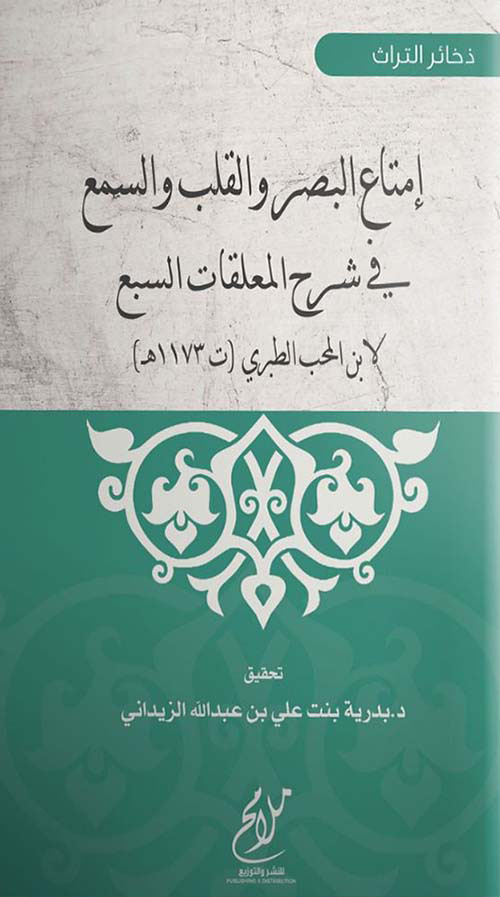 ذخائر التراث
إمتاع البصر والقلب والسمع
في شرح المعلقات السبع
لابن المحب الطبري (ت ١١٧٣هـ)
تحقيق
د.بدرية بنت علي بن عبدالله الزيداني
ملامح
للنشر والتوزيع
PUBLISHING & DISTRIBUTION